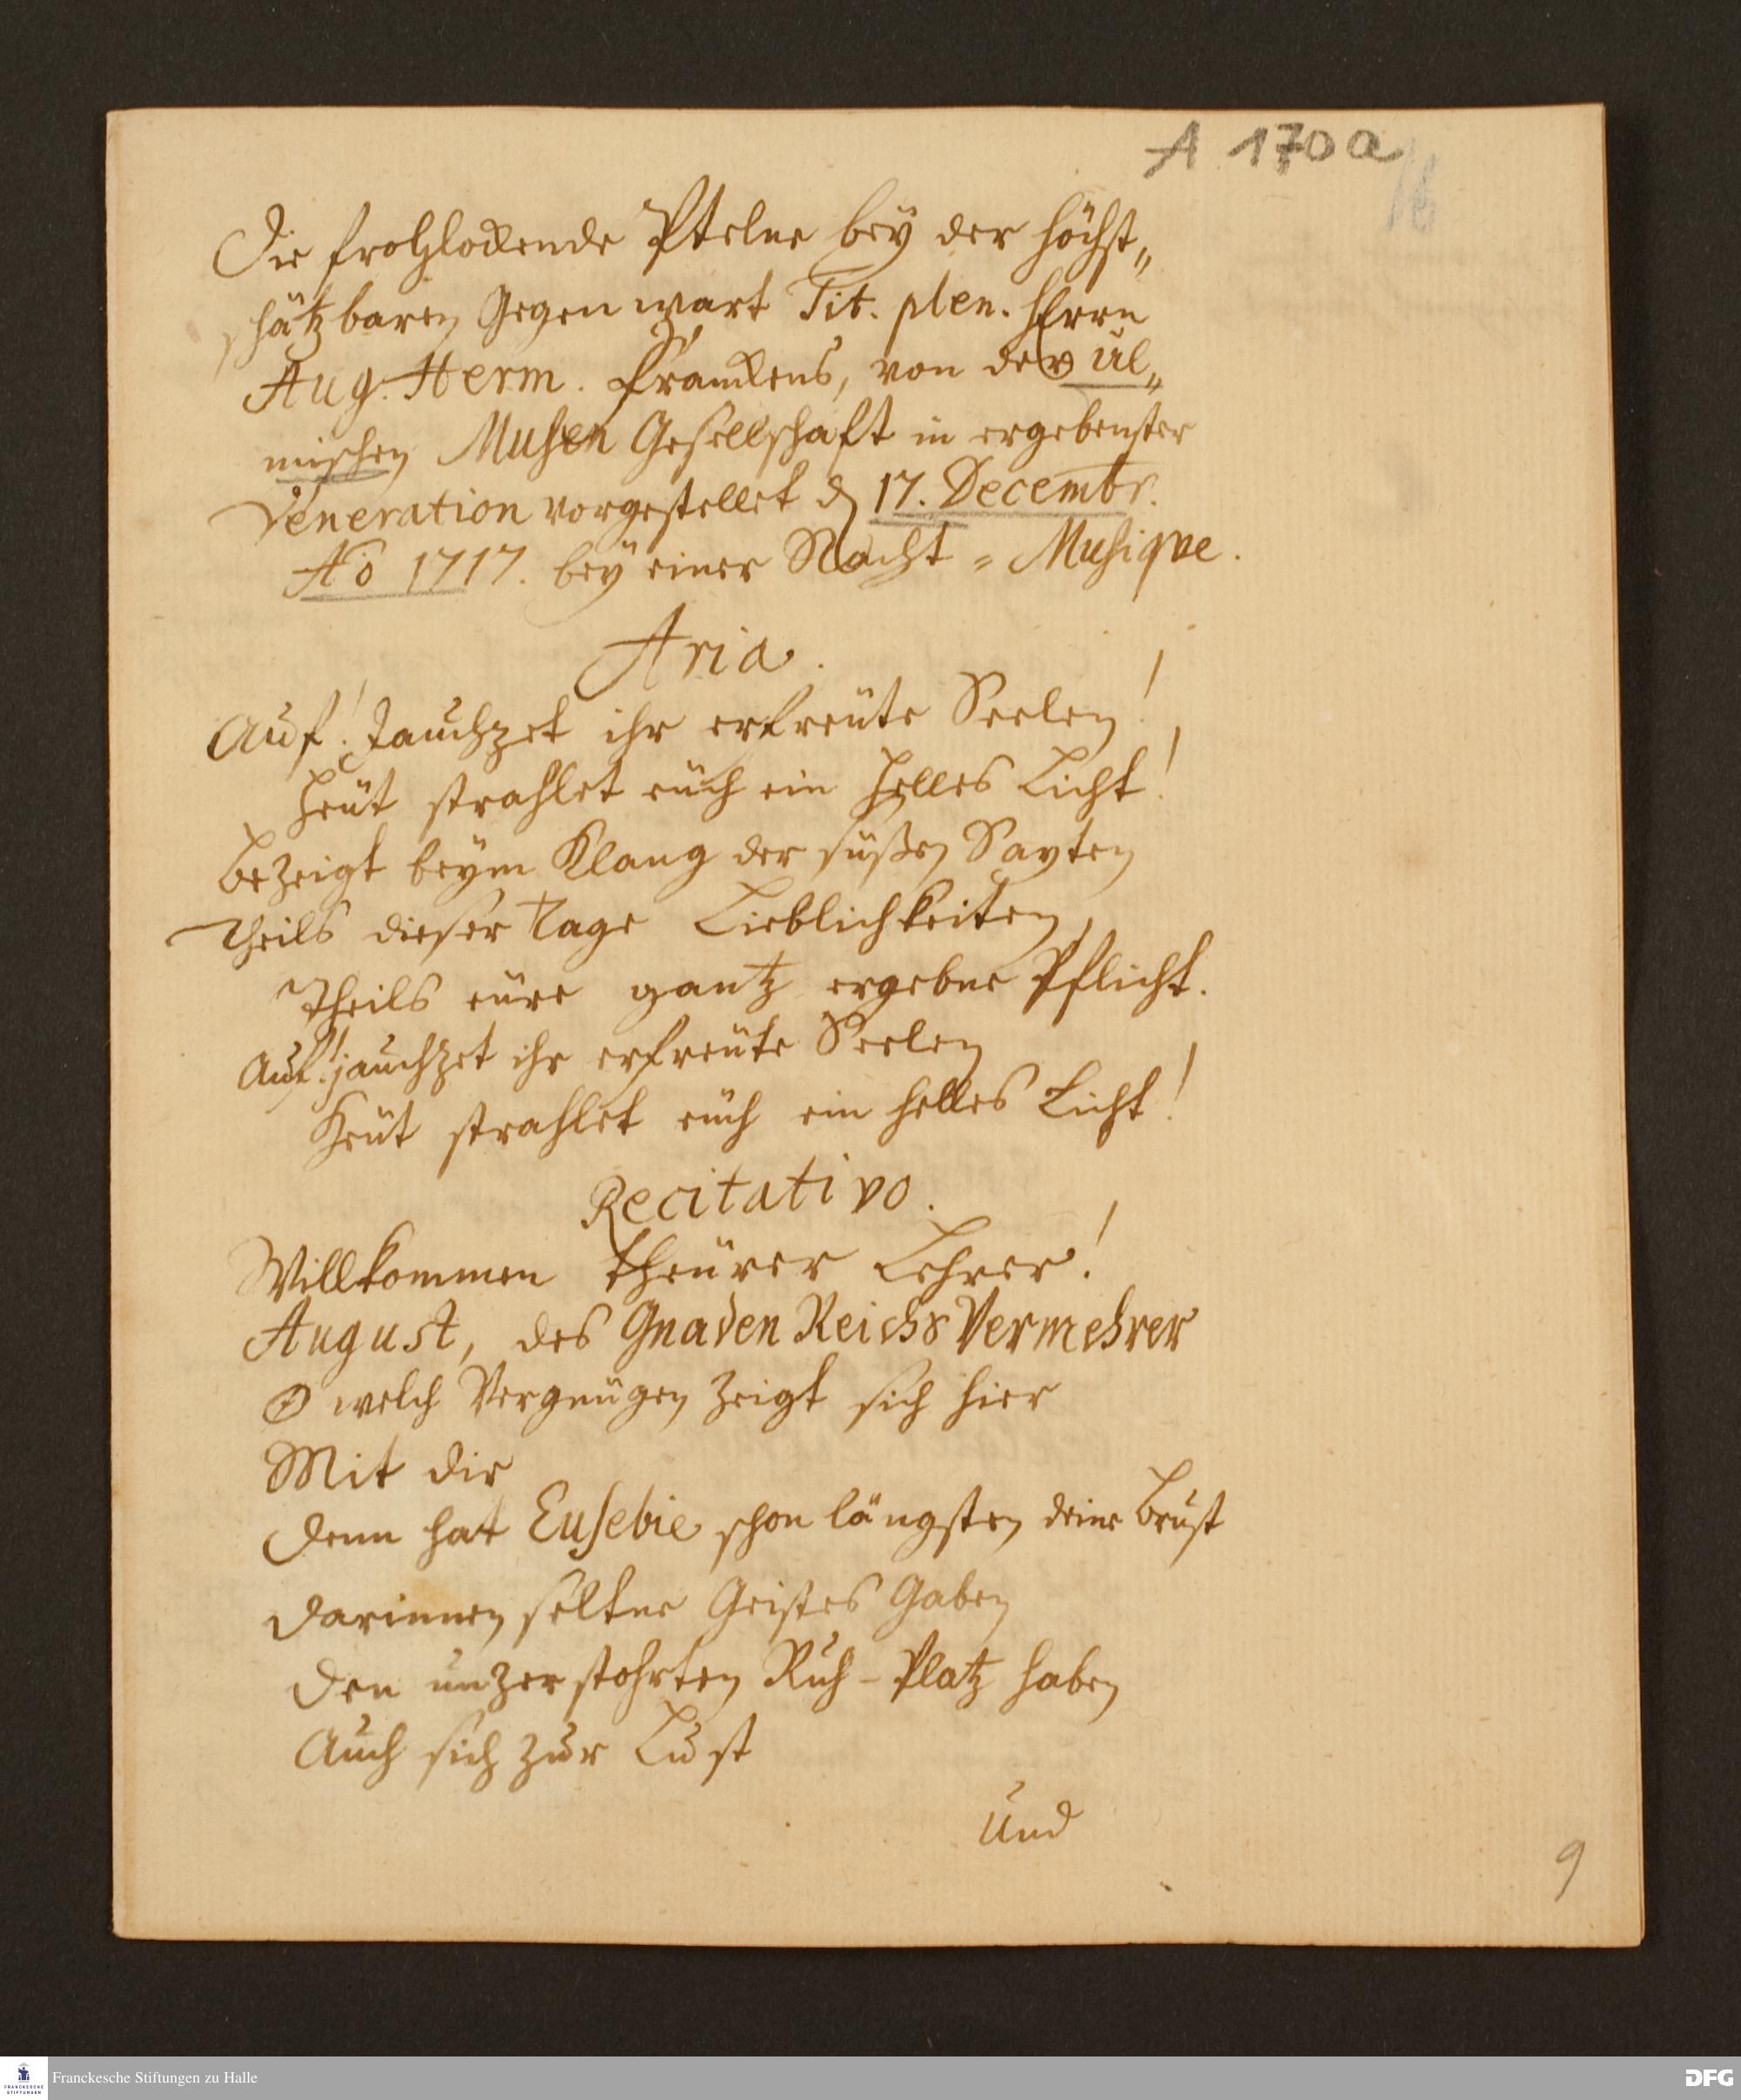 A 170 a
16
Die frohlockende Ptelne bey der höchst„
schätzbaren Gegenwart Tit. plen. Herrn
Aug. Herm. Franckens, von der Ul„
mischen Musen Gesellschaft in ergebenster
Veneration vorgestellet d 17. Decembr.
Aō 1717. bey einer Nacht = Musiqve.
Aria.
Auf! Jauchzet ihr erfreüte Seelen!
Heüt strahlet eüch ein helles Licht!
Bezeigt beym Klang der süßen Sayten
Theils dieser Tage Lieblichkeiten,
Theils eüre gantz ergebne Pflicht.
Auf! jauchzet ihr erfreüte Seelen
Heüt strahlet eüch ein helles Licht!
Recitativo.
Willkommen theürer Lehrer!
August, des Gnaden Reichs Vermehrer
O welch Vergnügen zeigt sich hier
Mit dir
Denn hat Eusebie schon längsten deine Brust
Darinnen seltne Geistes Gaben
Den unzerstohrten Ruh-Platz haben
Auch sich zur Lust
Und
9
Franckesche Stiftungen zu Halle
FRANCKESCHE STIFTUNGEN
DFG